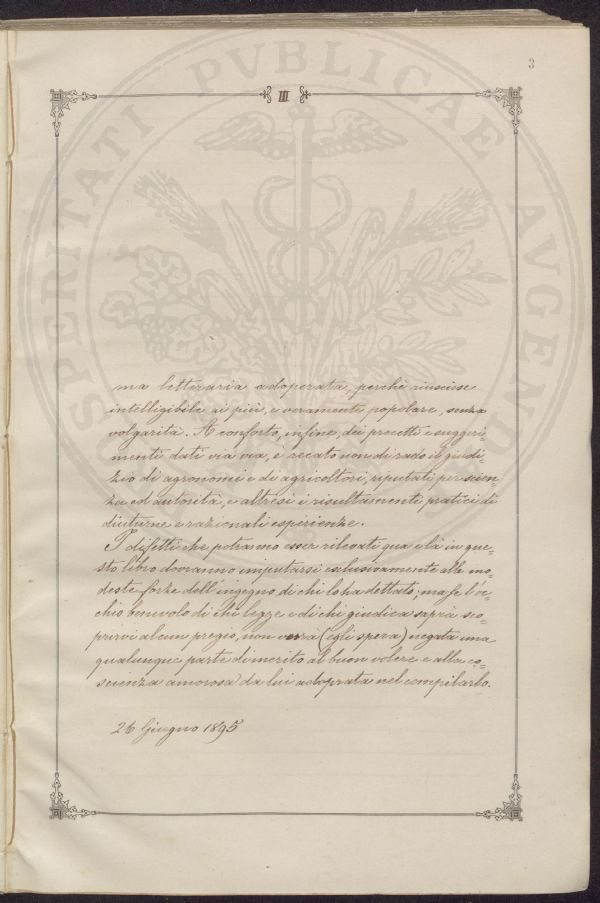 3
III
ma letteraria adoperata, perchè riuscisse
intelligibile ai più, e veramente popolare, senza
volgarità. A conforto, infine, dei precetti e suggeri=
menti dati via via, è recato non di rado il giudi=
zio di agronomi e di agricoltori, riputati per scien=
za ed autorità, e altresì i risultamenti pratici di
diuturne e razionali esperienze.
I difetti che potranno esser rilevati qua e là in que=
sto libro dovranno imputarsi esclusivamente alle mo=
deste forze dell'ingegno di chi lo ha dettato; ma se l'oc=
chio benevolo di chi legge e di chi giudica saprà sco=
prirvi alcun pregio, non verrà (egli spera) negata una
qualunque parte di merito al buon volere e alla co=
scienza amorosa da lui adoprata nel compilarlo.
26 Giugno 1895
SPERITATI PVBLICAE AVGENDAE